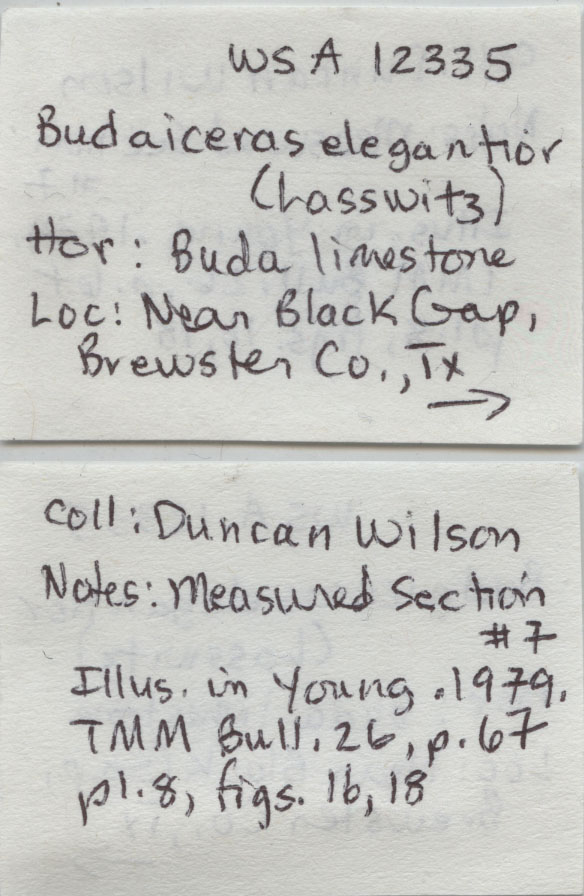 WSA 12335
Budaiceras elegantior
(Lasswitz)
Hor: Buda limestone
Loc: Near Black Gap,
Brewster Co., Tx
→
Coll: Duncan Wilson
Notes: Measured Section
#7
Illus. in Young. 1979.
TMM Bull. 26, p. 67
pl. 8, figs. 16, 18